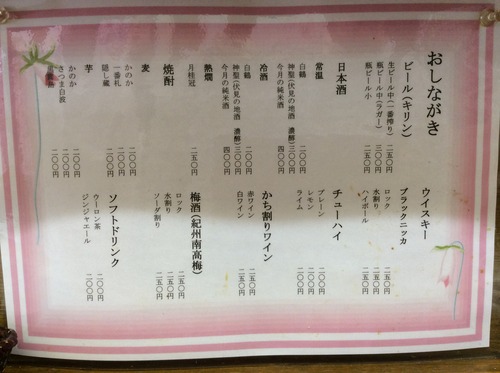 おしながき
ビール(キリン)
生ビール中(一番搾り) 二五〇円
瓶ビール中(ラガー) 三〇〇円
瓶ビール小 二五〇円
日本酒
常温
白鶴 二〇〇円
神聖(伏見の地酒 濃醇)三〇〇円
今月の純米酒 四〇〇円
冷酒
白鶴 二〇〇円
神聖(伏見の地酒 濃醇)三〇〇円
今月の純米酒 四〇〇円
熱燗
月桂冠 二五〇円
焼酎
麦
かのか 二〇〇円
一番札 二〇〇円
隠し蔵 二〇〇円
芋
かのか 二〇〇円
さつま白波 二〇〇円
二〇〇円
ウイスキー
ブラックニッカ
ロック 二五〇円
水割り 二五〇円
ハイボール 二五〇円
チューハイ
プレーン 二〇〇円
レモン 二〇〇円
ライム 二〇〇円
かち割りワイン
赤ワイン 二五〇円
白ワイン 二五〇円
梅酒(紀州南高梅)
ロック 二五〇円
水割り 二五〇円
ソーダ割り 二五〇円
ソフトドリンク
ウーロン茶 二〇〇円
ジンジャエール 二〇〇円